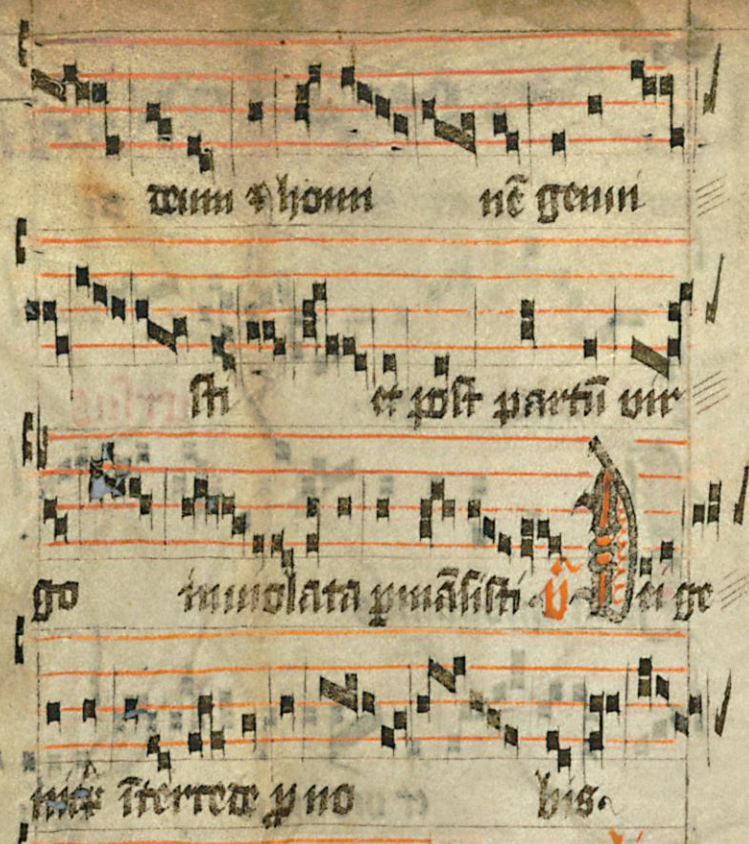 deum & homi nē genui
sti et post partū vir
go inuiolata pmāsisti. V̄ Dei ge
intercede p no bis.